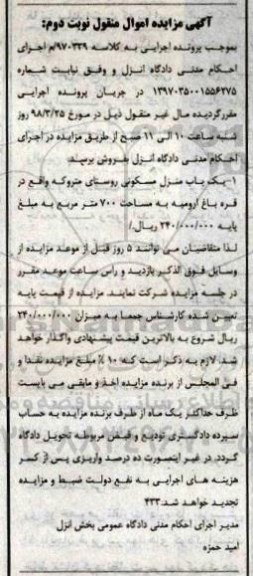 آگهی مزایده اموال منقول نوبت دوم:
بموجب پرونده اجرایی به کلاسه ۹۷۰۳۲۹/م اجرای
احکام مدنی دادگاه انزل و وفق نیابت شماره
۱۳۹۷۰۳۵۰۰۱۵۵۶۲۷۵ در جریان پرونده اجرایی
مقررگردیده مال غیر منقول ذیل در مورخ ۹۸/۳/۲۵ روز
شنبه ساعت ۱۰ الی ۱۱ صبح از طریق مزایده در اجرای
احکام مدنی دادگاه انزل بفروش برسد.
۱-یک باب منزل مسکونی روستای متروکه واقع در
قره باغ ارومیه به مساحت ۷۰۰ متر مربع به مبلغ
پایه ۲۴۰/۰۰۰/۰۰۰ ریال./
لذا متقاضیان می توانند ۵ روز قبل از موعد مزایده از
وسایل فوق الذکر بازدید و راس ساعت موعد مقرر
در جلسه مزایده شرکت نمایند. مزایده از قیمت پایه
تعیین شده کارشناس جمعا به میزان ۲۴۰/۰۰۰/۰۰۰
ریال شروع به بالاترین قیمت پیشنهادی واگذار خواهد
شد. لازم به ذکر است که ۱۰٪ مبلغ مزایده نقدا و
فی المجلس از برنده مزایده اخذ و مابقی می بایست
ظرف حداکثر یک ماه از طرف برنده مزایده به حساب
سپرده دادگستری تودیع و قبض مربوطه تحویل دادگاه
گردد. در غیر اینصورت ده درصد واریزی پس از کسر
هزینه های اجرایی به نفع دولت ضبط و مزایده
تجدید خواهد شد ۴۳۳
مدیر اجرای احکام مدنی دادگاه عمومی بخش انزل
امید حمزه